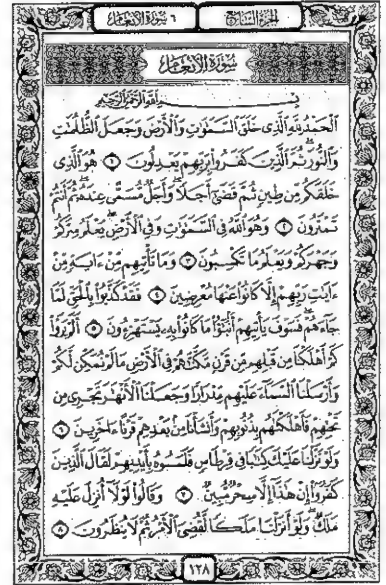 الجزء السابع
٦ سورة الأنعام
سورة الأنعام
بسم الله الرحمن الرحيم
الحمد لله الذي خلق السموات والأرض وجعل الظلمت
والنور ثم الذين كفروا بربهم يعدلون ١ هو الذي
خلقكم من طين ثم قضى أجلا وأجل مسمى عنده ثم أنتم
تمترون ٢ وهو الله في السموات وفي الأرض يعلم سركم
وجهركم ويعلم ما تكسبون ٣ وما تأتيهم من ءاية من
ءايت ربهم إلا كانوا عنها معرضين ٤ فقد كذبوا بالحق لما
جاءهم فسوف يأتيهم أنبؤا ما كانوا به يستهزءون ٥ ألم يروا
كم أهلكنا من قبلهم من قرن مكنهم في الأرض ما لم نمكن لكم
وأرسلنا السماء عليهم مدرارا وجعلنا الأنهر تجري من
تحتهم فأهلكنهم بذنوبهم وأنشأنا من بعدهم قرنا ءاخرين ٦
ولو نزلنا عليك كتبا في قرطاس فلمسوه بأيديهم لقال الذين
كفروا إن هذا إلا سحر مبين ٧ وقالوا لولا أنزل عليه
ملك ولو أنزلنا ملكا لقضي الأمر ثم لا ينظرون ٨
١٢٨